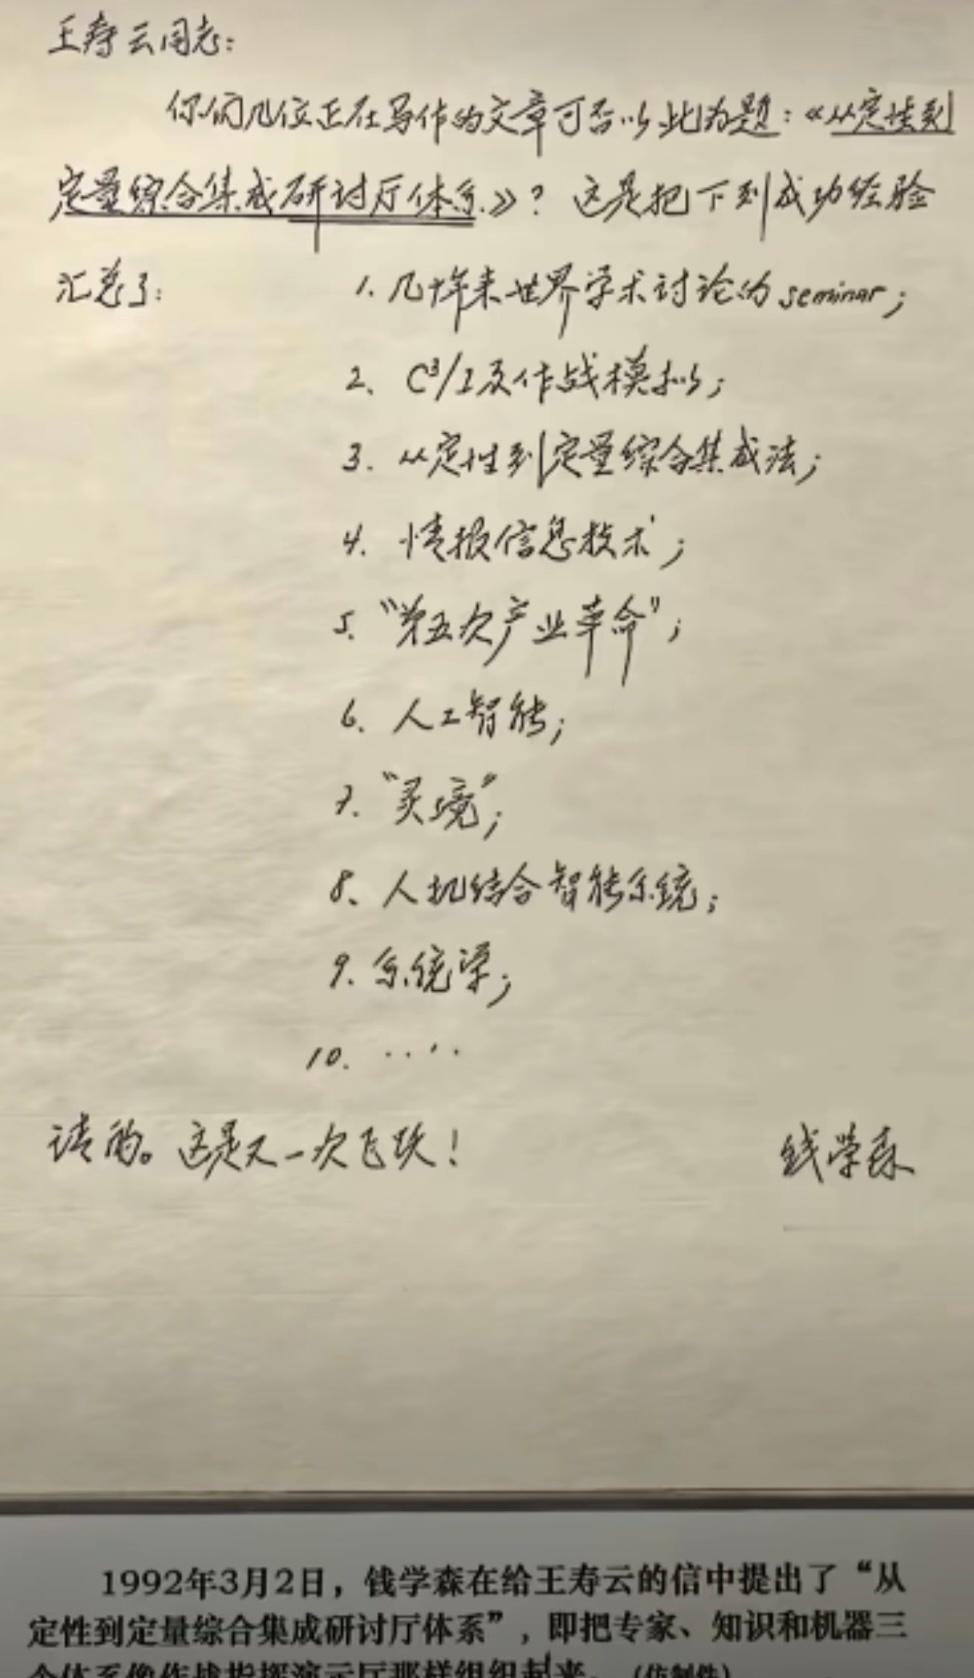 王寿云同志:
你们几位正在写作的文章可否以此为题:《从定性到
定量综合集成研讨厅体系》? 这是把下列成功经验
汇总了: 1. 几十年来世界学术讨论的seminar;
2. C³/I及作战模拟;
3. 从定性到定量综合集成法;
4. 情报信息技术;
5. “第五次产业革命”;
6. 人工智能;
7. “灵境”;
8. 人机结合智能系统;
9. 系统学;
10. ····
请酌。这是又一次飞跃! 钱学森
1992年3月2日,钱学森在给王寿云的信中提出了“从
定性到定量综合集成研讨厅体系”,即把专家、知识和机器三
个体系像作战指挥演示厅那样组织起来。(仿制件)